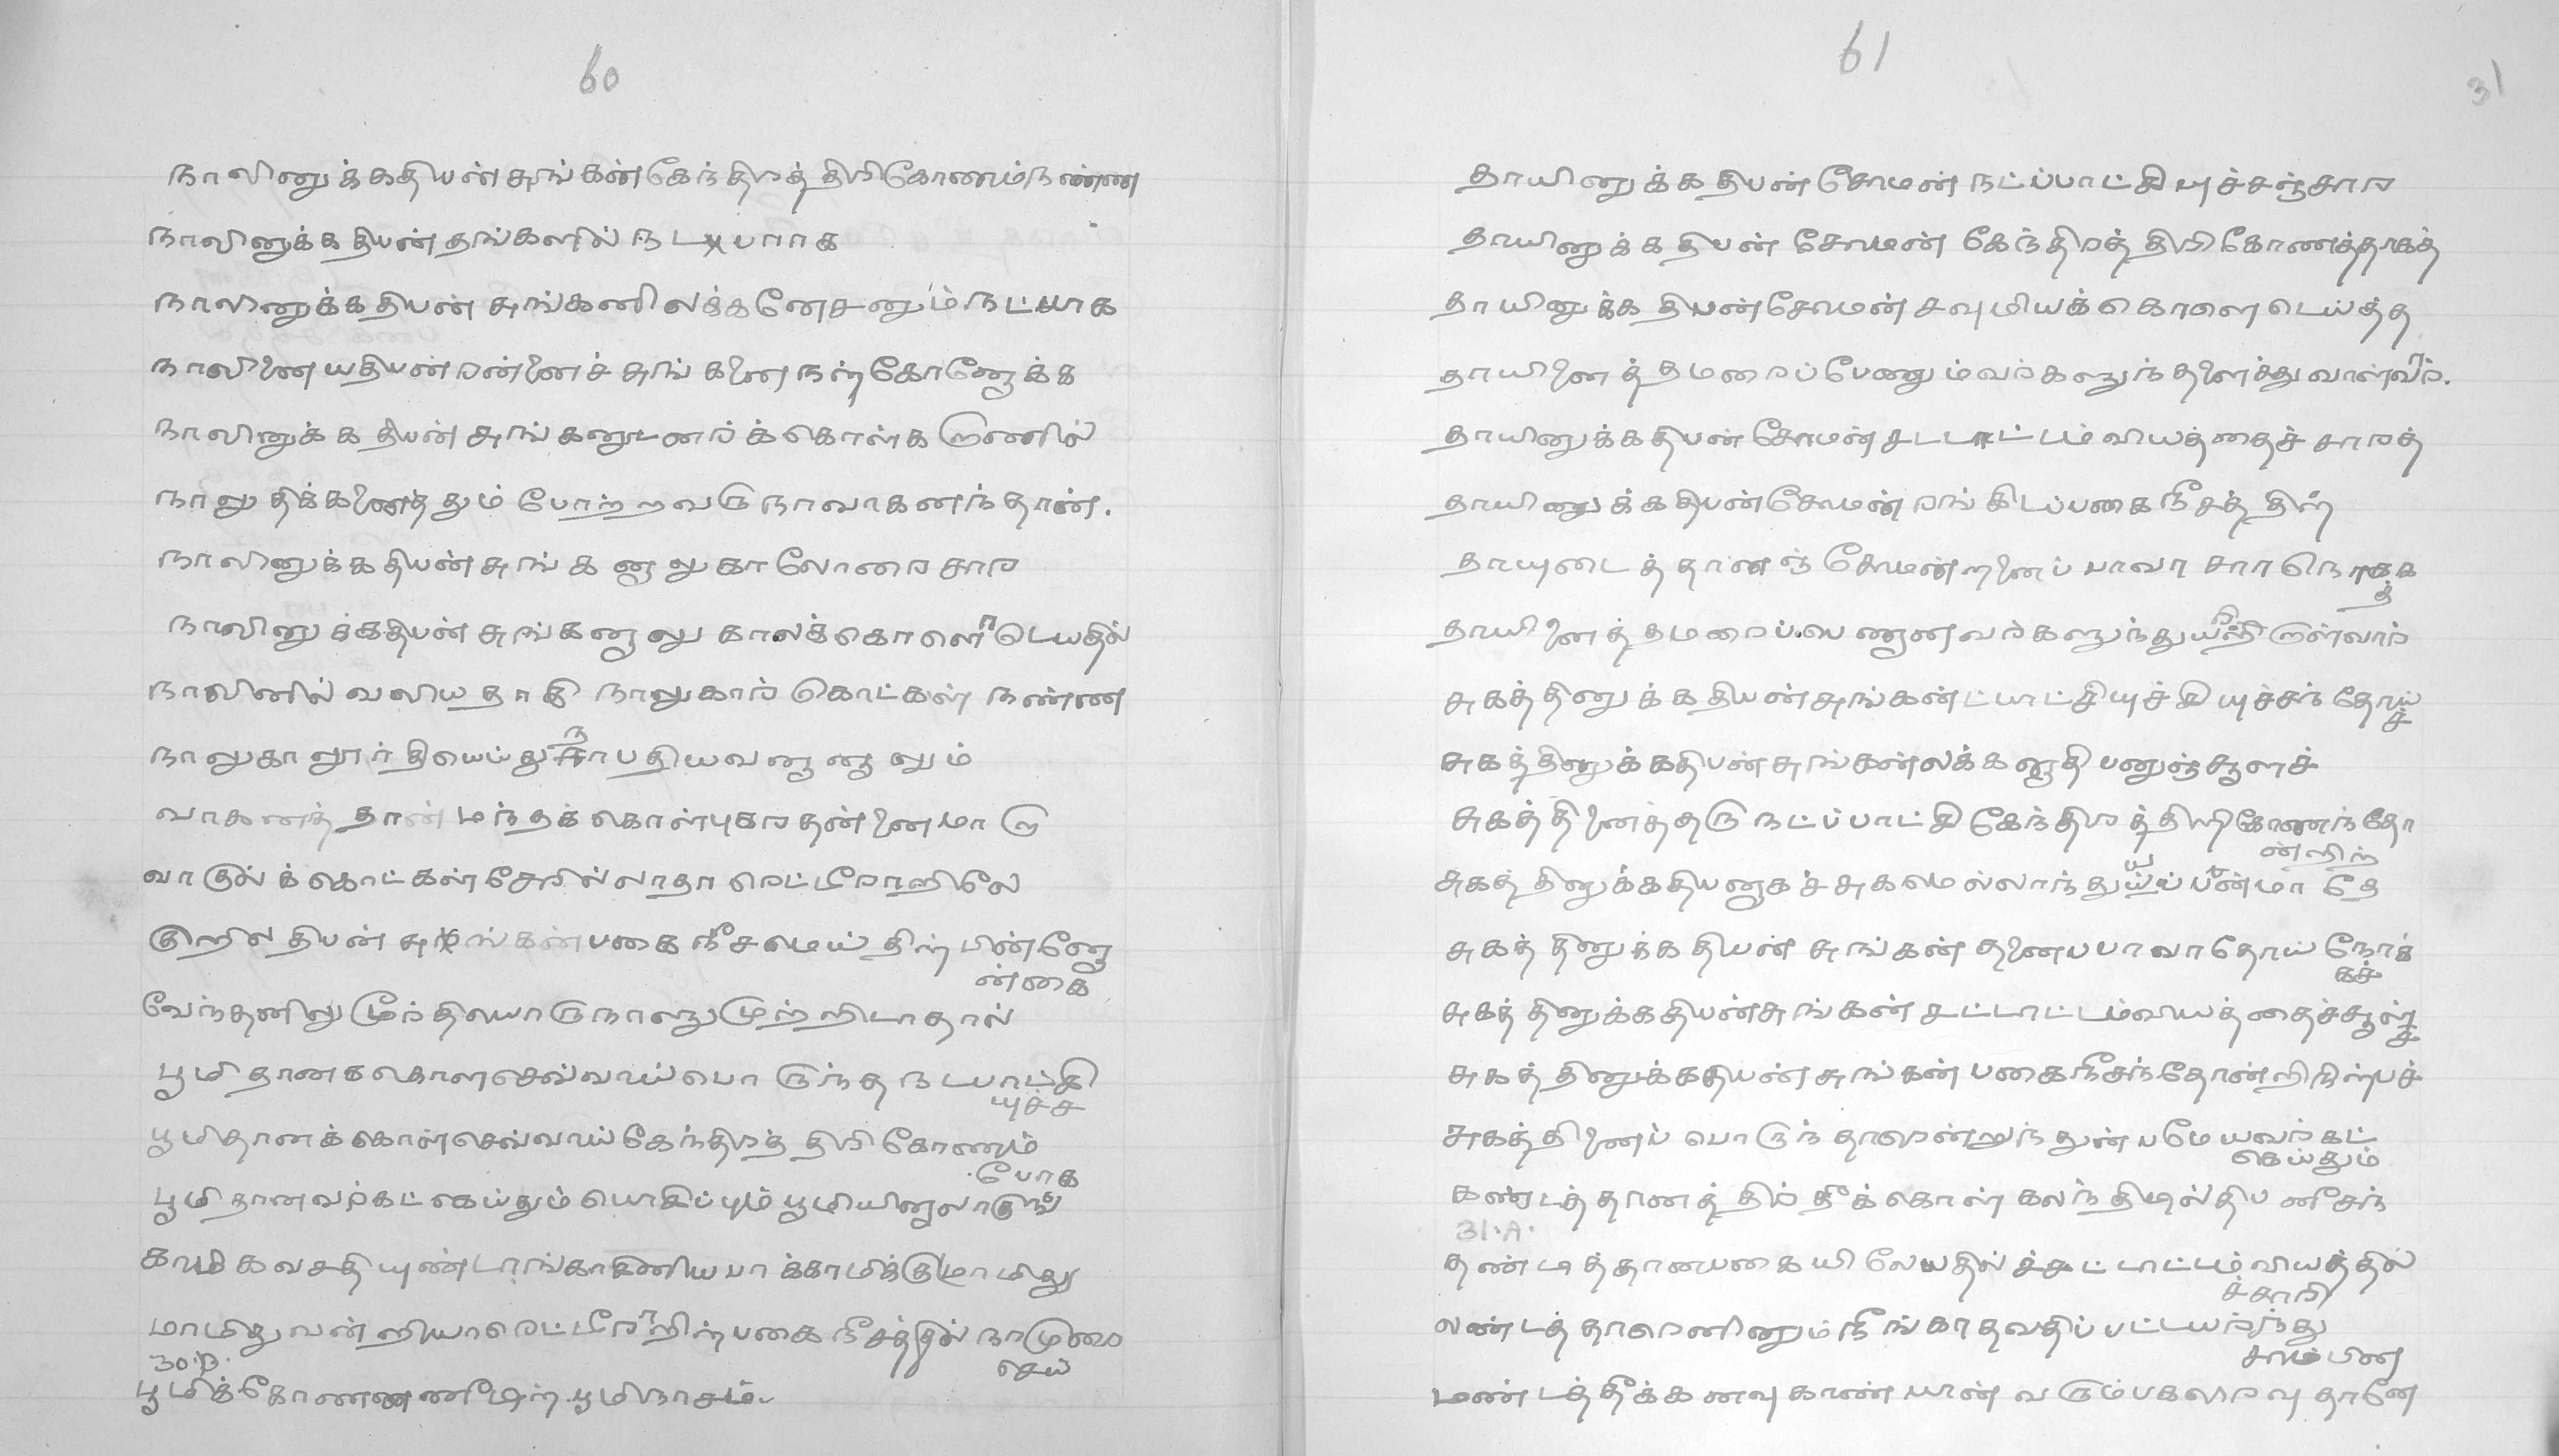 60
நாலினுக்கதியன் சுங்கன் கேந்திரத் திரிகோணம் நண்ண
நாலினுக்கதியன் தங்களில் நடபாாக
நாலினுக்கதியன் சுங்கனிலக்கனேசனும் நட்பாக
நாலினை யதியன்றன்னைச் சுங்கனை நற்கோணேக்க
நாலினுக்கதியன் சுங்கனுடனார்க் கொள்க றணில்
நாலு திக்கனைத்தும் போற்றவரு நாவாகனந்தான்.
நாலினுக்கதியன் சுங்கனாலுகாலோரை சார
நாலினுக்கதியன் சுங்கனாலு காலக்கொளொடெயதில்
நாலினில் வலியதாகி நாலுகார் கொட்கள் நண்ண
நாலுகாலூர்தியெய்து நரபதியவனானாலும்
வாகனத்தான் மந்தக்கொள்புகரதன்னை மாறு
வாகுல்க் கொட்கள் சேரில்லாதா றெட்டீராறிலே
குறில தியன் சுங்கன் பகை நீசமெய்திற் பின்னே
ன்கை
வேந்தனிலுமூர்தியொடு நாளுமுற்றிடாதால்
பூமிதானகொளசெவ்வாய் பொருந்த நடபாட்சி
யுச்ச
பூமிதானக்கொள்செவ்வாய் கேந்திரத் திரிகோணம்
போக
பூமிதானவர்கட்கெய்தும் யொகிப்பும் பூமியினாலாகுங்
காமிகவசதியுண்டாங்காகிணியபாக்காமிக்குமாமிது
மாமிதுவன்றியாறெட்டீராறிற்பகை நீசத்தில் நாமுறை
செய்
30.B.
பூமிக்கோணணணீடிற் பூமிநாசம்.
61
31
தாயினுக்கதிபன் சோமன் நட்ப்பாட்சியுச்சஞ்சார
தாயினுக்கதிபன் சோமன் கேந்திரத் திரிகோணத்தாகத்
தாயினுக்கதிபன் சோமன் சவுமியக்கொளைடெய்த்த
தாயினைத்தமரைப்பேணும்வர்களுந்தளைத்துவாள்வீர்.
தாயினுக்கதிபன் சோமன் சடடாட்டம் வியத்தைச் சாரத்
தாயினுக்கதிபன் சோமன் றங்கிடப்பகைநீசத்தின்
தாயுடைத்தானஞ் சோமன்றனைப் பாவர் சாரநொகக
த்
தாயினைத்தமரைப்பெணானவர்களுந்துயரிந்திருள்வார்
சுகத்தினுக்கதியன் சுங்கன்ட்யாட்சியுச்சியுச்சந்தோய
ச்
சுகத்தினுக்கதிபன் சுங்கன்லக்கனாதிபனுஞ்சூளச்
சுகத்தினைத்தரு நட்ப்பாட்சி கேந்திரத்திரிகோணந்தோ
ன்றிற்
சுகத்தினுக்கதியனாகச் சுகமெல்லாந்துய்ப்பன் மாதே
சுகத்தினுக்கதியன் சுங்கன் தனைபபாவர்தோய் நோக்
கச்
சுகத்தினுக்கதியன்சுங்கன் சட்டாட்டம்வியத்தைச்சூள்
ச்
சுகத்தினுக்கதியன் சுங்கன் பகைநீசந்தோன்றிநிற்பச்
சுகத்தினைப் பொருந்தாரென்றுந் துன்பமேயவர்கட்
கெய்தும்
கண்டத்தானத்தில் தீக்கொள் கலந்திடில்திப னீசந்
31.A.
தண்டித்தானபகையிலேயதில்ச்சட்டாட்டம்வியத்தில்
ச்சாரி
லண்டத்தாரெனினும்நீங்காதவதிப்பட்டயர்ந்து
சாம்பின
மண்டத்தீக்கனவுகாண்பான் வரும்பகலிரவு தானே